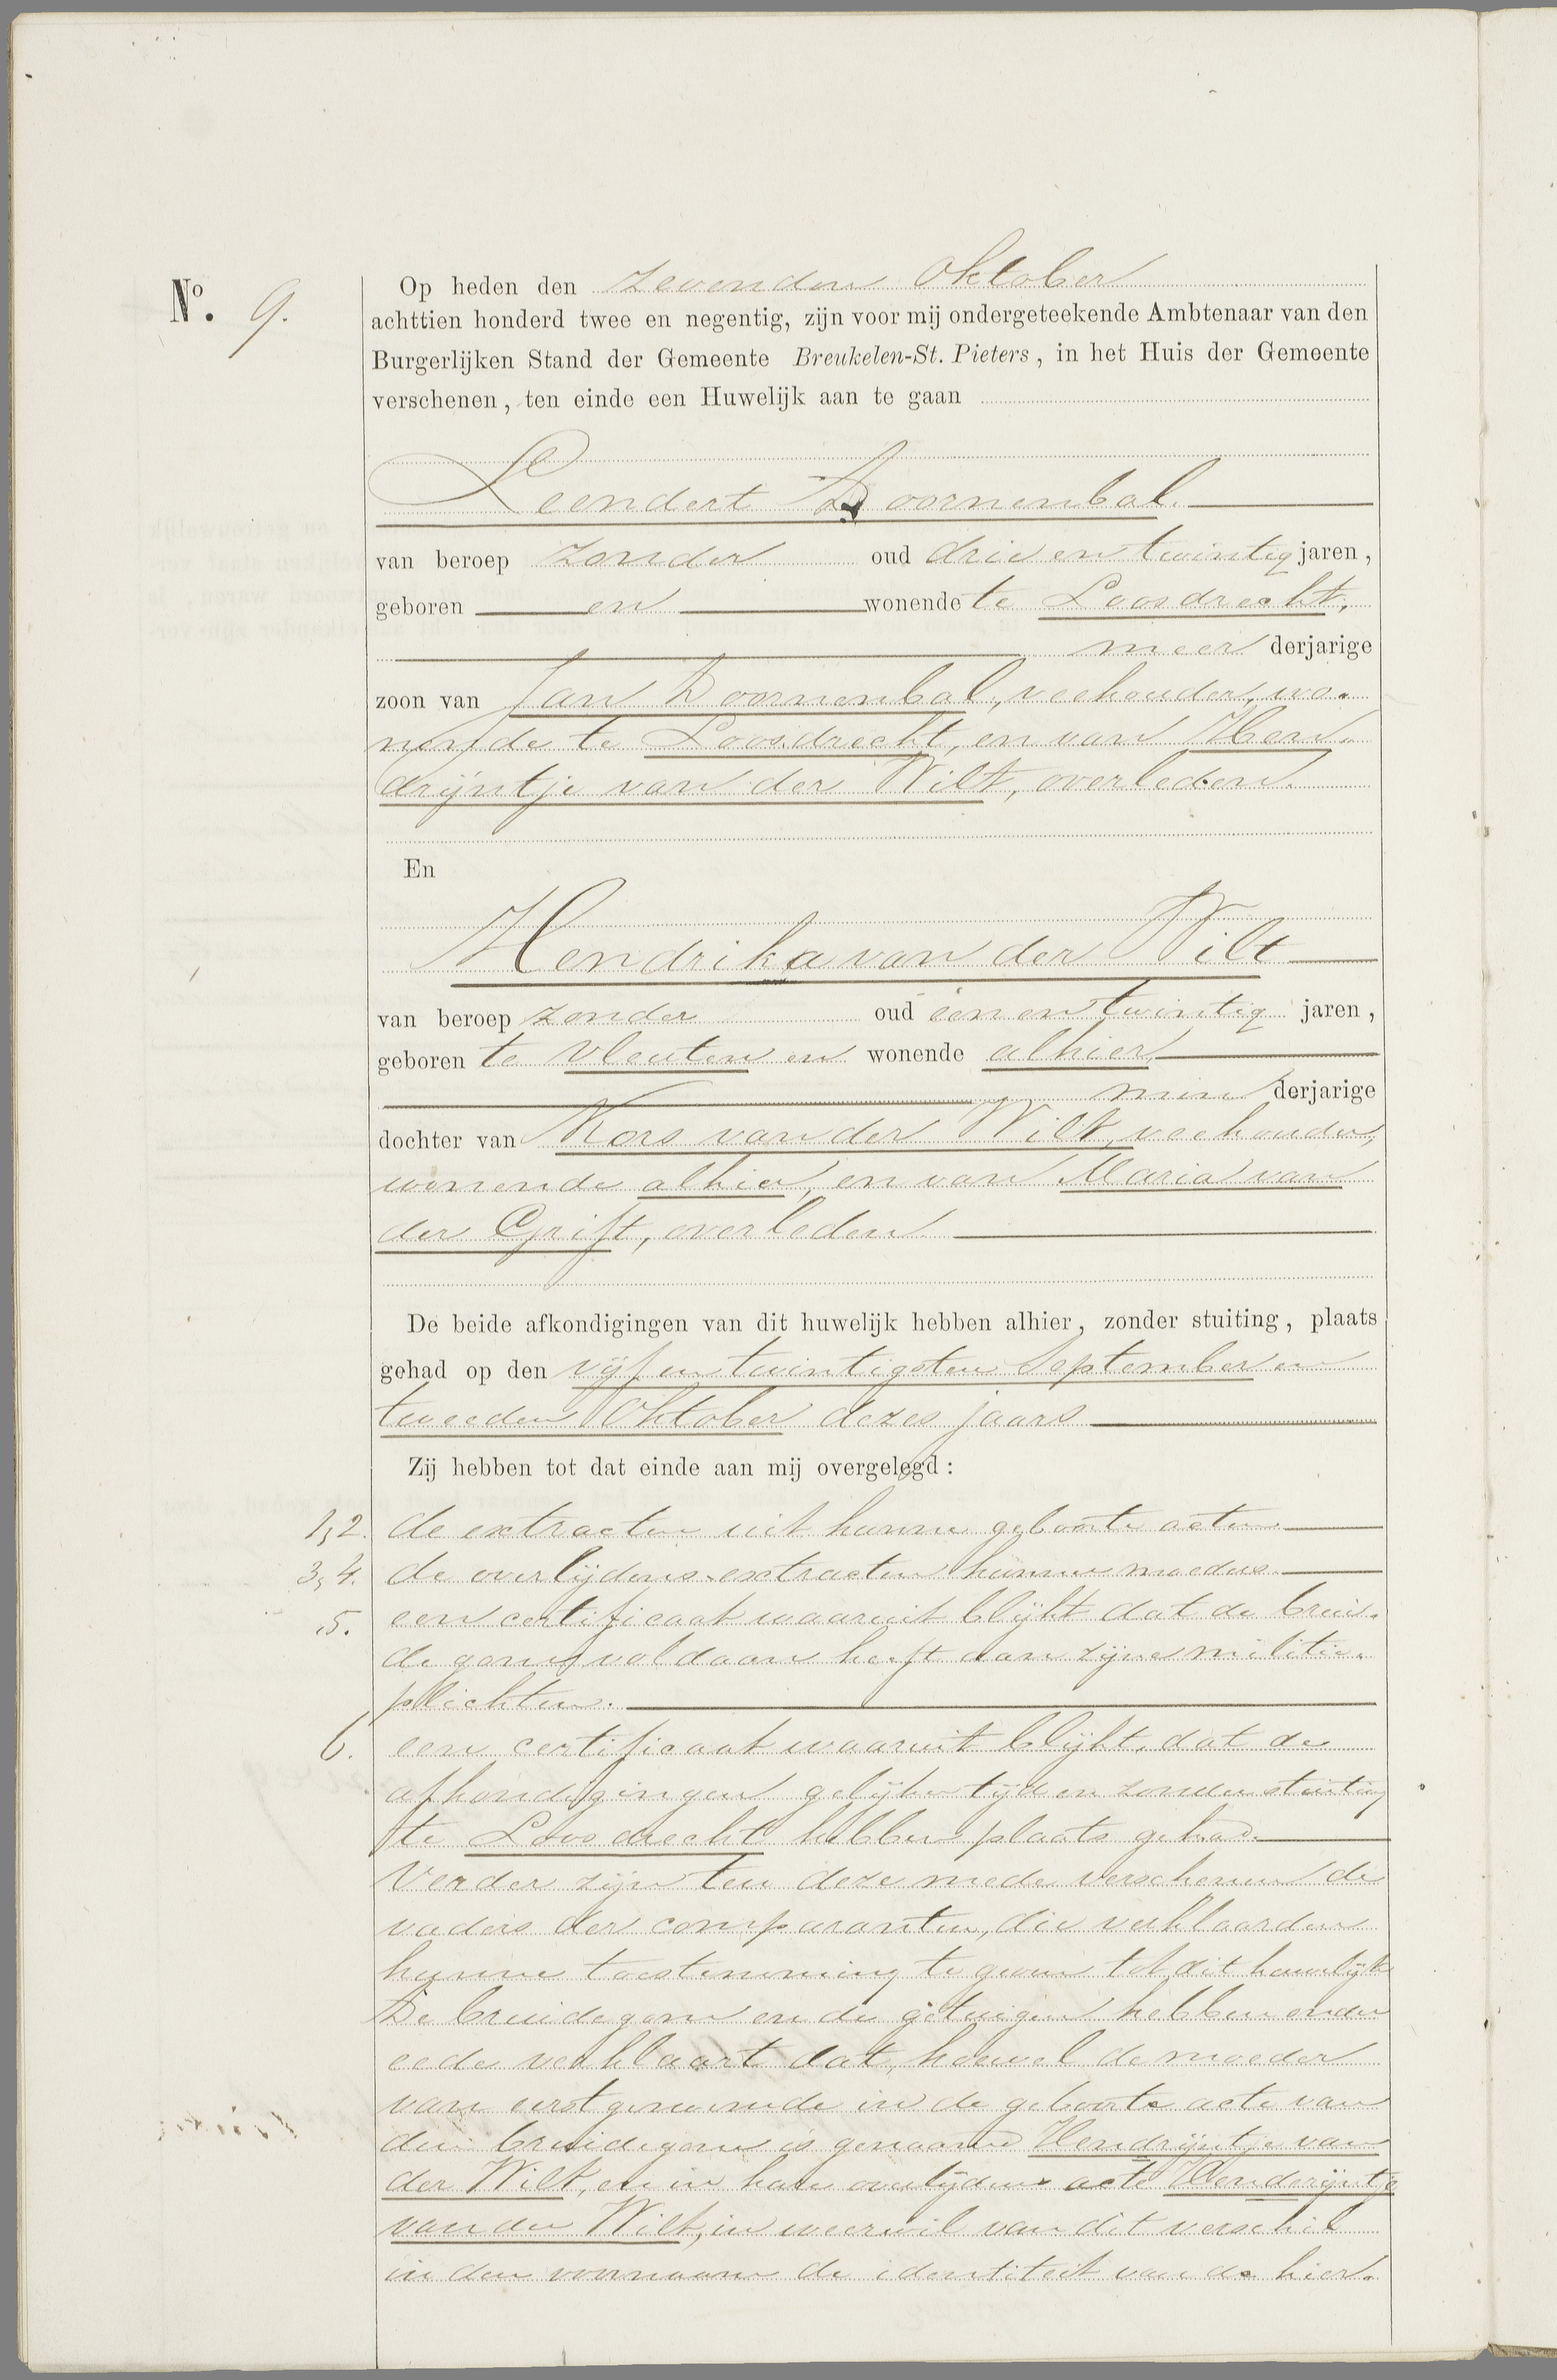 Nº. 9.
Op heden den zevenden Oktober
achttien honderd twee en negentig, zijn voor mij ondergeteekende Ambtenaar van den
Burgerlijken Stand der Gemeente Breukelen-St. Pieters, in het Huis der Gemeente
verschenen, ten einde een Huwelijk aan te gaan
Leendert Doornenbal.
van beroep zonder oud drie en twintig jaren,
geboren en wonende te Loosdrecht,
meer derjarige
zoon van Jan Doornenbal, veehouder, wo-
nende te Loosdrecht, en van Hen-
drijntje van der Wilt, overleden.
En
Hendrika van der Wilt
van beroep zonder oud een en twintig jaren,
geboren te Vleuten en wonende alhier,
min derjarige
dochter van Kors van der Wilt, veehouder,
wonende alhier, en van Maria van
der Grift, overleden.
De beide afkondigingen van dit huwelijk hebben alhier, zonder stuiting, plaats
gehad op den vijf en twintigsten September en
tweeden Oktober dezes jaars
Zij hebben tot dat einde aan mij overgelegd:
1, 2. de extracten uit hunne geboorte acten.
3, 4. de overlijdens-extracten hunner moeders.
5. een certificaat waaruit blijkt dat de brui-
degom voldaan heeft aan zijne militie-
plichten.
6. een certificaat waaruit blijkt, dat de
afkondigingen gelijker tijd en zonder stuiting
te Loosdrecht hebben plaats gehad.
Verder zijn ten deze mede verschenen de
vaders der comparanten, die verklaarden
hunne toestemming te geven tot dit huwelijk
De bruidegom en de getuigen hebben onder
eede verklaart dat, hoewel de moeder
van eerstgenoemde in de geboorte acte van
den bruidegom is genaamd Hendrijntje van
der Wilt, en in hare overlijdens acte Henderijntje
van der Wilt, in weerwil van dit verschil
in den voornaam de identiteit van de hier-